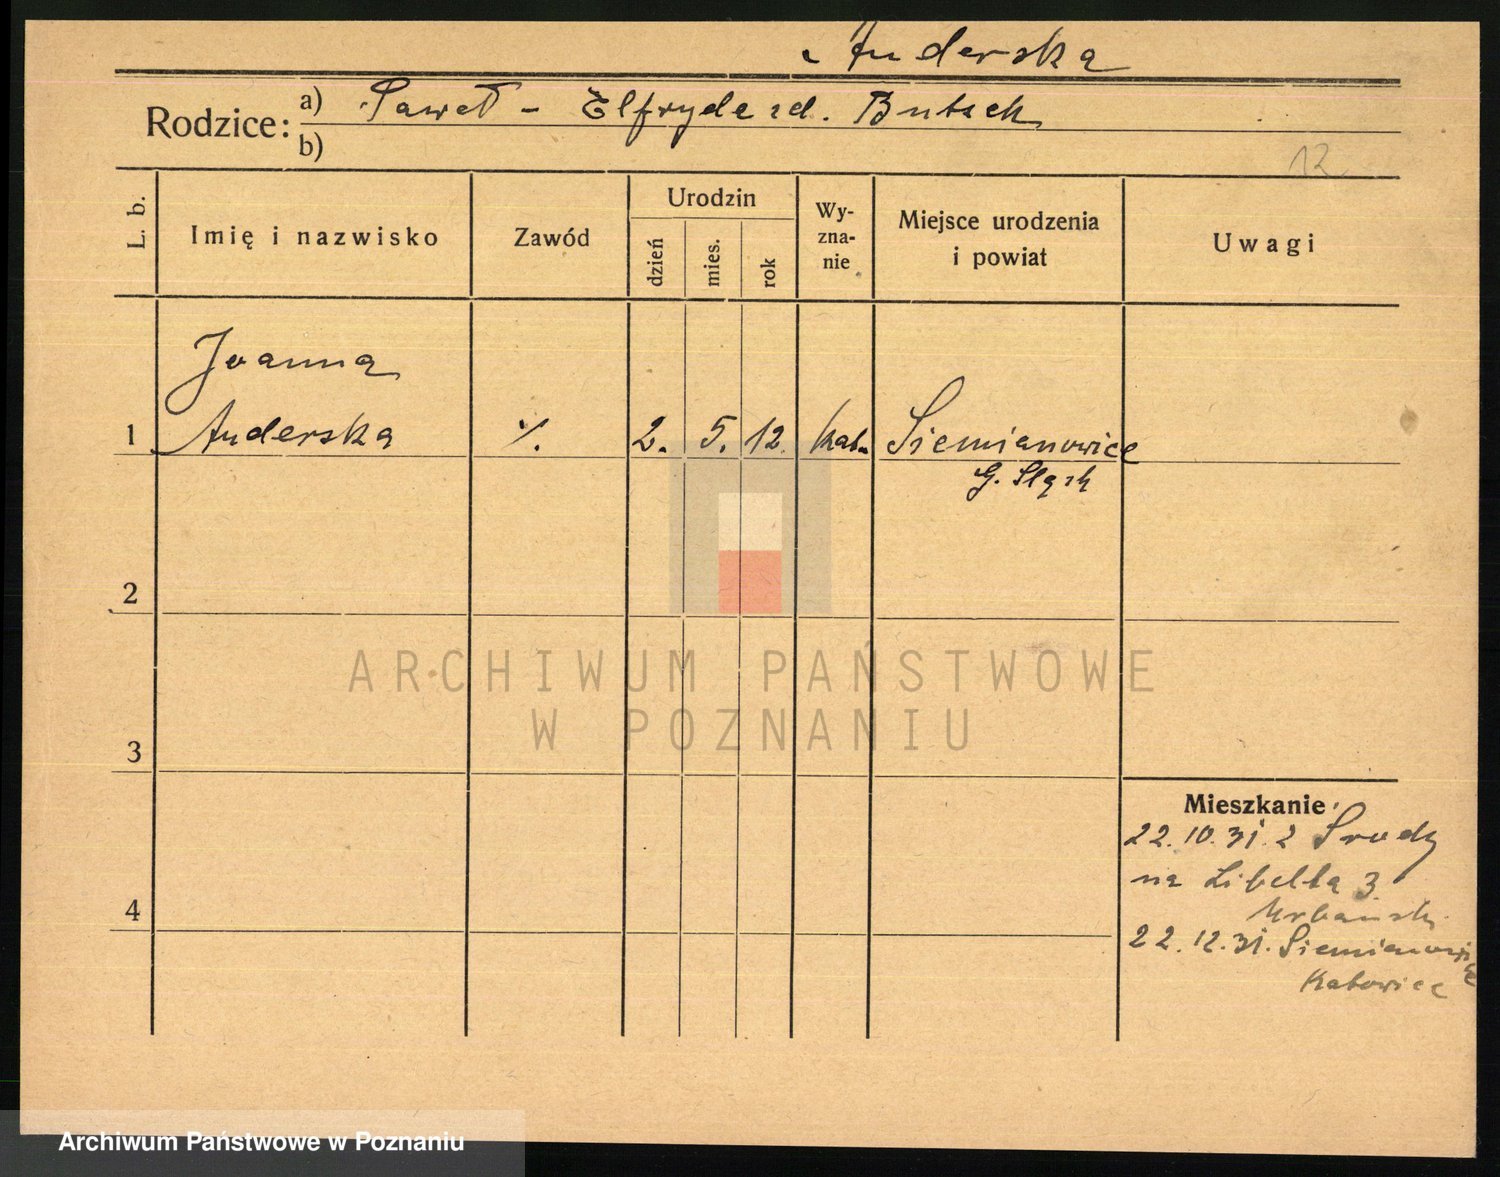 Anderska
Rodzice: a) Paweł - Elfryde zd. Butzek
b)
12
L. b.
Imię i nazwisko
Zawód
Urodzin
dzień
mies.
rok
Wy-
zna-
nie
Miejsce urodzenia
i powiat
Uwagi
Joanna
1 Anderska ·/. 2. 5. 12. kat. Siemianowice
G. Śląsk
2
3
4
ARCHIWUM PAŃSTWOWE
W POZNANIU
Mieszkanie:
22.10.31. z Środy
na Libelta 3
Urbański
22.12.31. Siemianowice
Katowice
Archiwum Państwowe w Poznaniu